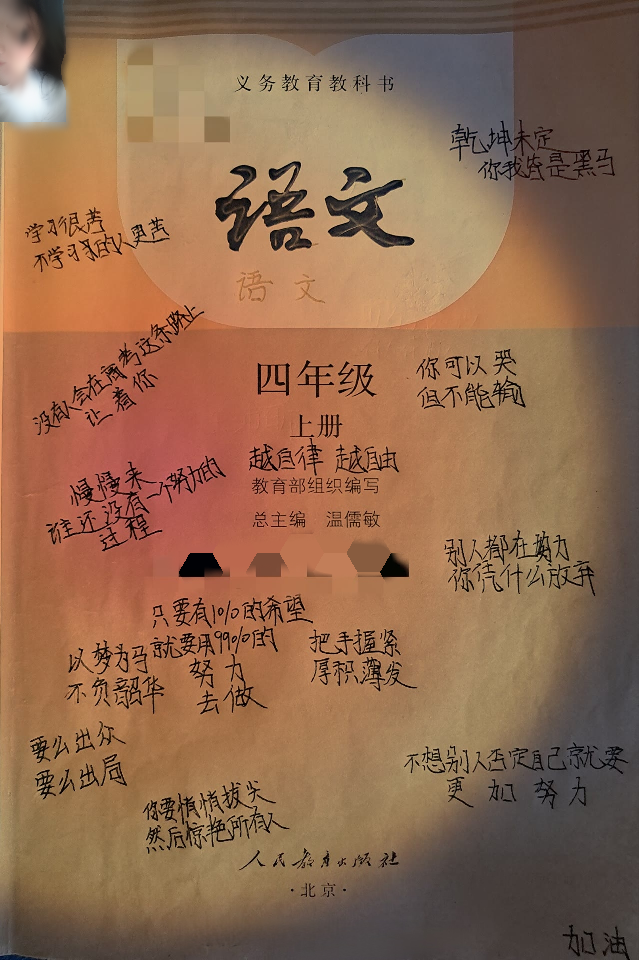 义务教育教科书
乾坤未定
你我皆是黑马
语文
语文
学习很苦
不学习的人更苦
没有人会在高考这条路上
让着你
四年级
上册
你可以哭
但不能输
越自律 越自由
教育部组织编写
总主编 温儒敏
慢慢来
谁还没有一个努力的
过程
别人都在努力
你凭什么放弃
只要有10%的希望
就要用99%的
努力
去做
以梦为马
不负韶华
把手握紧
厚积薄发
要么出众
要么出局
不想别人否定自己就要
更加努力
你要悄悄拔尖
然后惊艳所有人
人民教育出版社
·北京·
加油